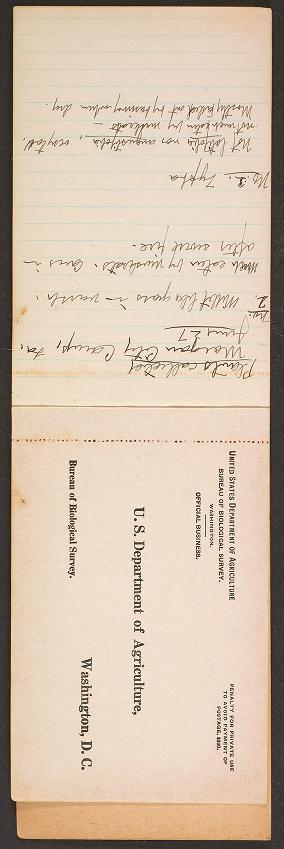 Plants collected
Morgan City Camp, La.
June 27
No. 1.
Millet like grass in marsh.
Much eaten by muskrats. Comes in
after severe fire.
No. 2. Typha
Not latifolia nor angustifolia,
not much eaten by muskrats —
Mostly killed out by burning when dry.
UNITED STATES DEPARTMENT OF AGRICULTURE
BUREAU OF BIOLOGICAL SURVEY.
WASHINGTON.
OFFICIAL BUSINESS.
PENALTY FOR PRIVATE USE
TO AVOID PAYMENT OF
POSTAGE, $300.
U. S. Department of Agriculture,
Bureau of Biological Survey.
Washington, D. C.